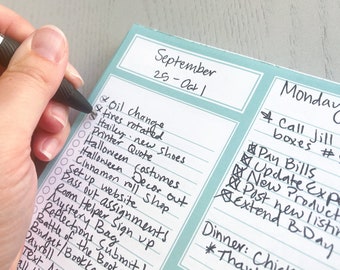 September
25 - Oct 1
Oil Change
tires rotated
Hailey: new shoes
Printer Quote
Halloween Costumes
Halloween Decor out
Cinnamon roll Shop
Set up website
Pass out assignments
Room Helper Sign up
Mystery Bag
Reflections Submit
Battle of the Book
Budget
Payroll / Book
Text
Monday
Call Jill
boxes #
Pay Bills
Update Exp
New Product
Post new listing
Extend B Day
Dinner: Chic